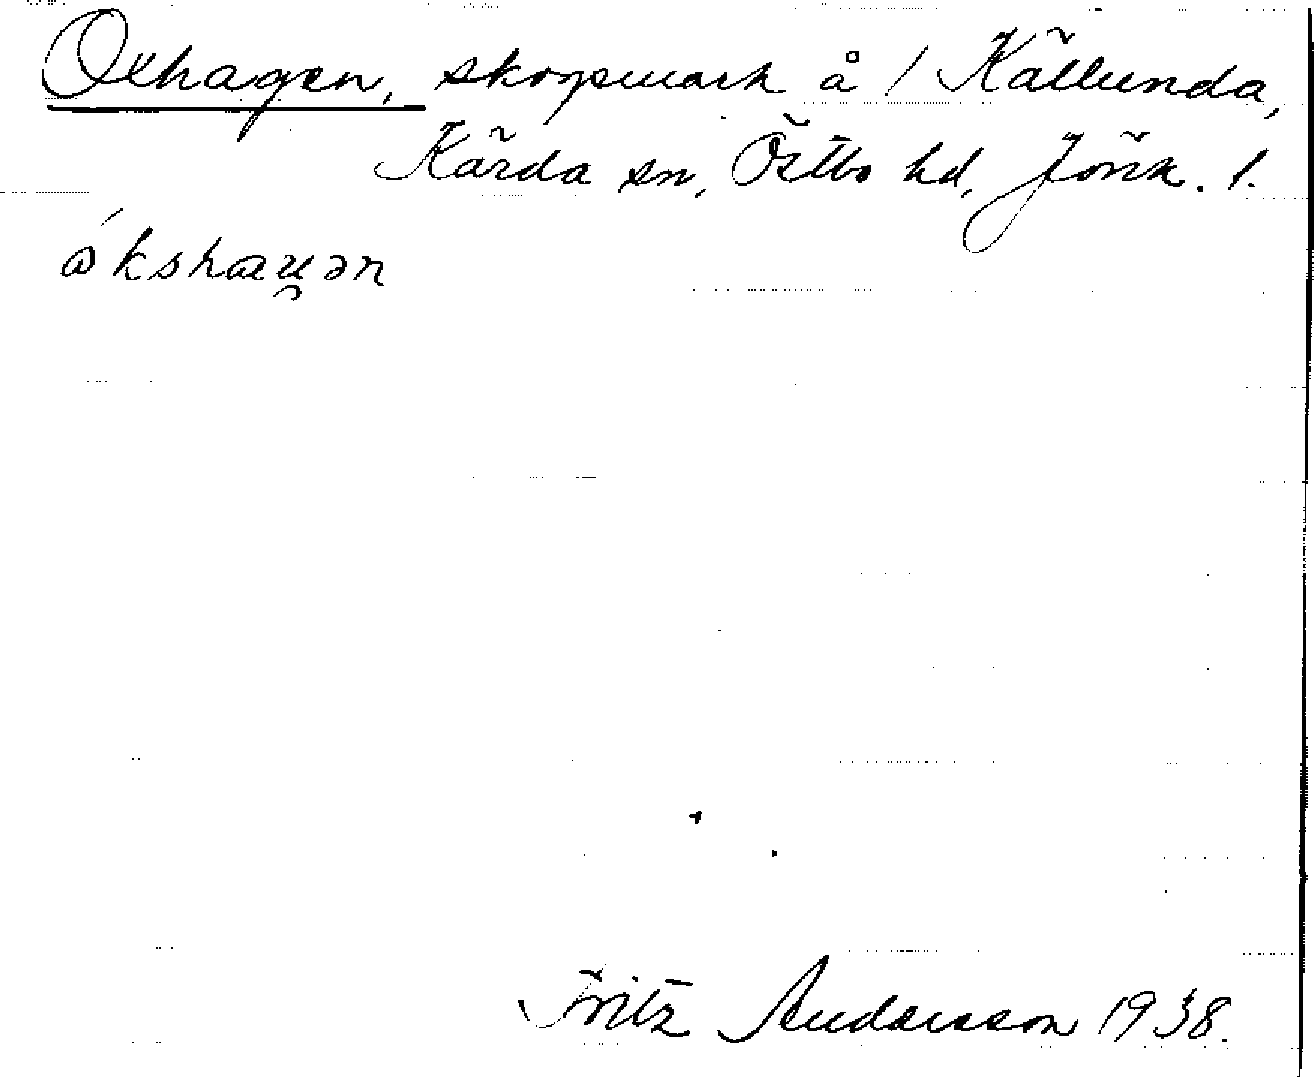 Oxhagen, skogsmark å 1 Källunda,
Kärda sn, Östbo hd, Jönk. l.
Fritz Andersson 1938.